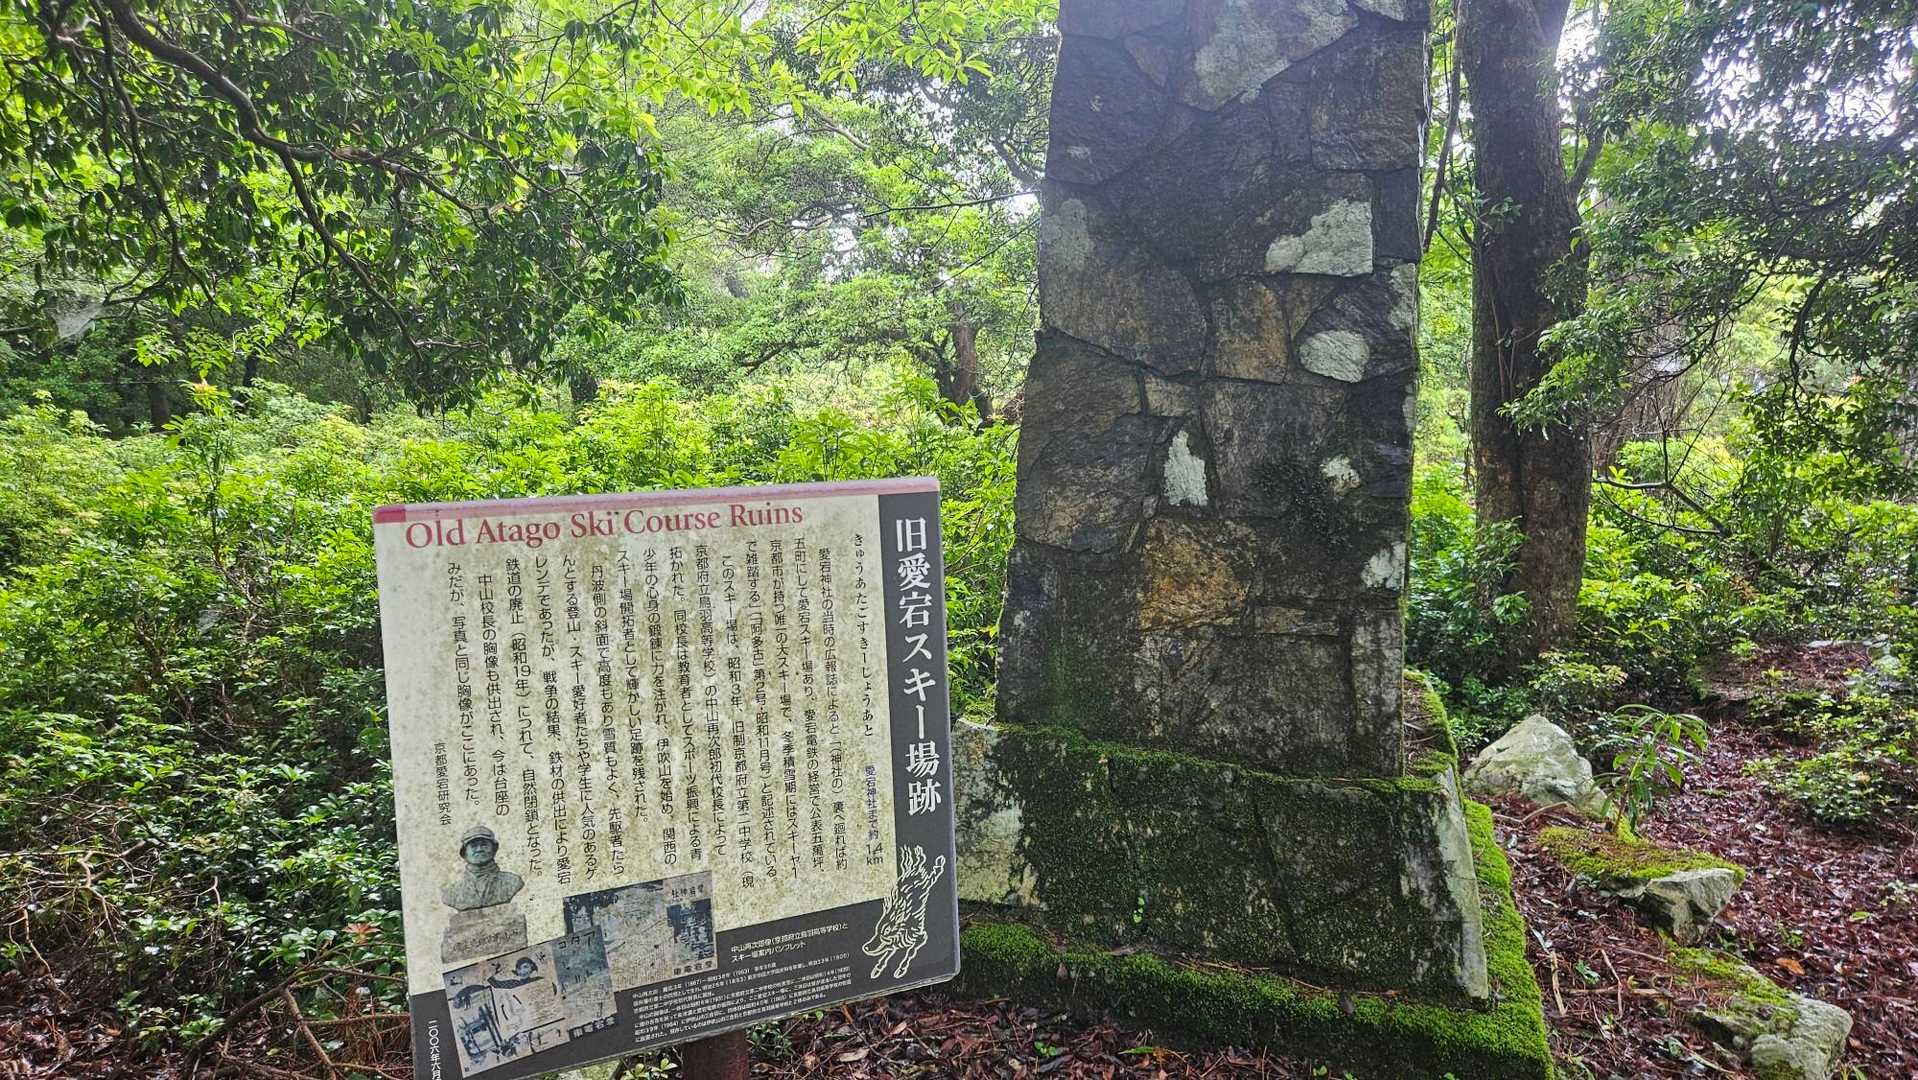 Old Atago Ski Course Ruins
旧愛宕スキー場跡
きゅうあたごすきーじょうあと
愛宕神社まで約1.4km
愛宕神社の当時の広報誌によると「(神社の)裏へ廻れば約
五町にして愛宕スキー場あり、愛宕電鉄の経営で公表五萬坪、
京都市が持つ唯一の大スキー場で、冬季積雪期にはスキーヤー
で雑踏する」「『阿多古』第2号・昭和11月号」と記述されている。
このスキー場は、昭和3年、旧制京都府立第二中学校(現
京都府立鳥羽高等学校)の中山再次郎初代校長によって
拓かれた。同校長は教育者としてスポーツ振興による青
少年の心身の鍛錬に力を注がれ、伊吹山を始め、関西の
スキー場開拓者として輝かしい足跡を残された。
丹波側の斜面で高度もあり雪質もよく、先駆者たら
んとする登山・スキー愛好者たちや学生に人気のあるゲ
レンデであったが、戦争の結果、鉄材の供出により愛宕
鉄道の廃止(昭和19年)につれて、自然閉鎖となった。
中山校長の胸像も供出され、今は台座の
みだが、写真と同じ胸像がここにあった。
京都愛宕研究会
中山再次郎像(京都府立鳥羽高等学校)と
スキー場案内パンフレット
二〇〇六年六月